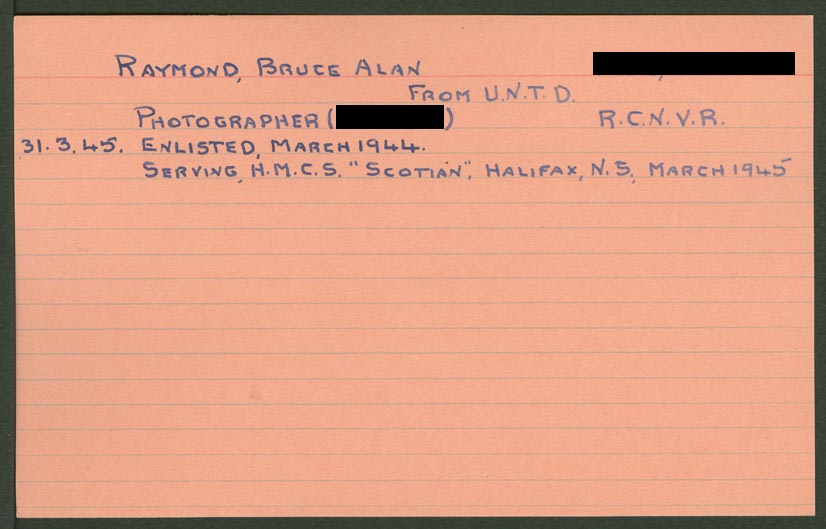 RAYMOND, BRUCE ALAN
FROM U.N.T.D.
PHOTOGRAPHER ( ) R.C.N.V.R.
31.3.45. ENLISTED, MARCH 1944.
SERVING, H.M.C.S. "SCOTIAN", HALIFAX, N.S, MARCH 1945